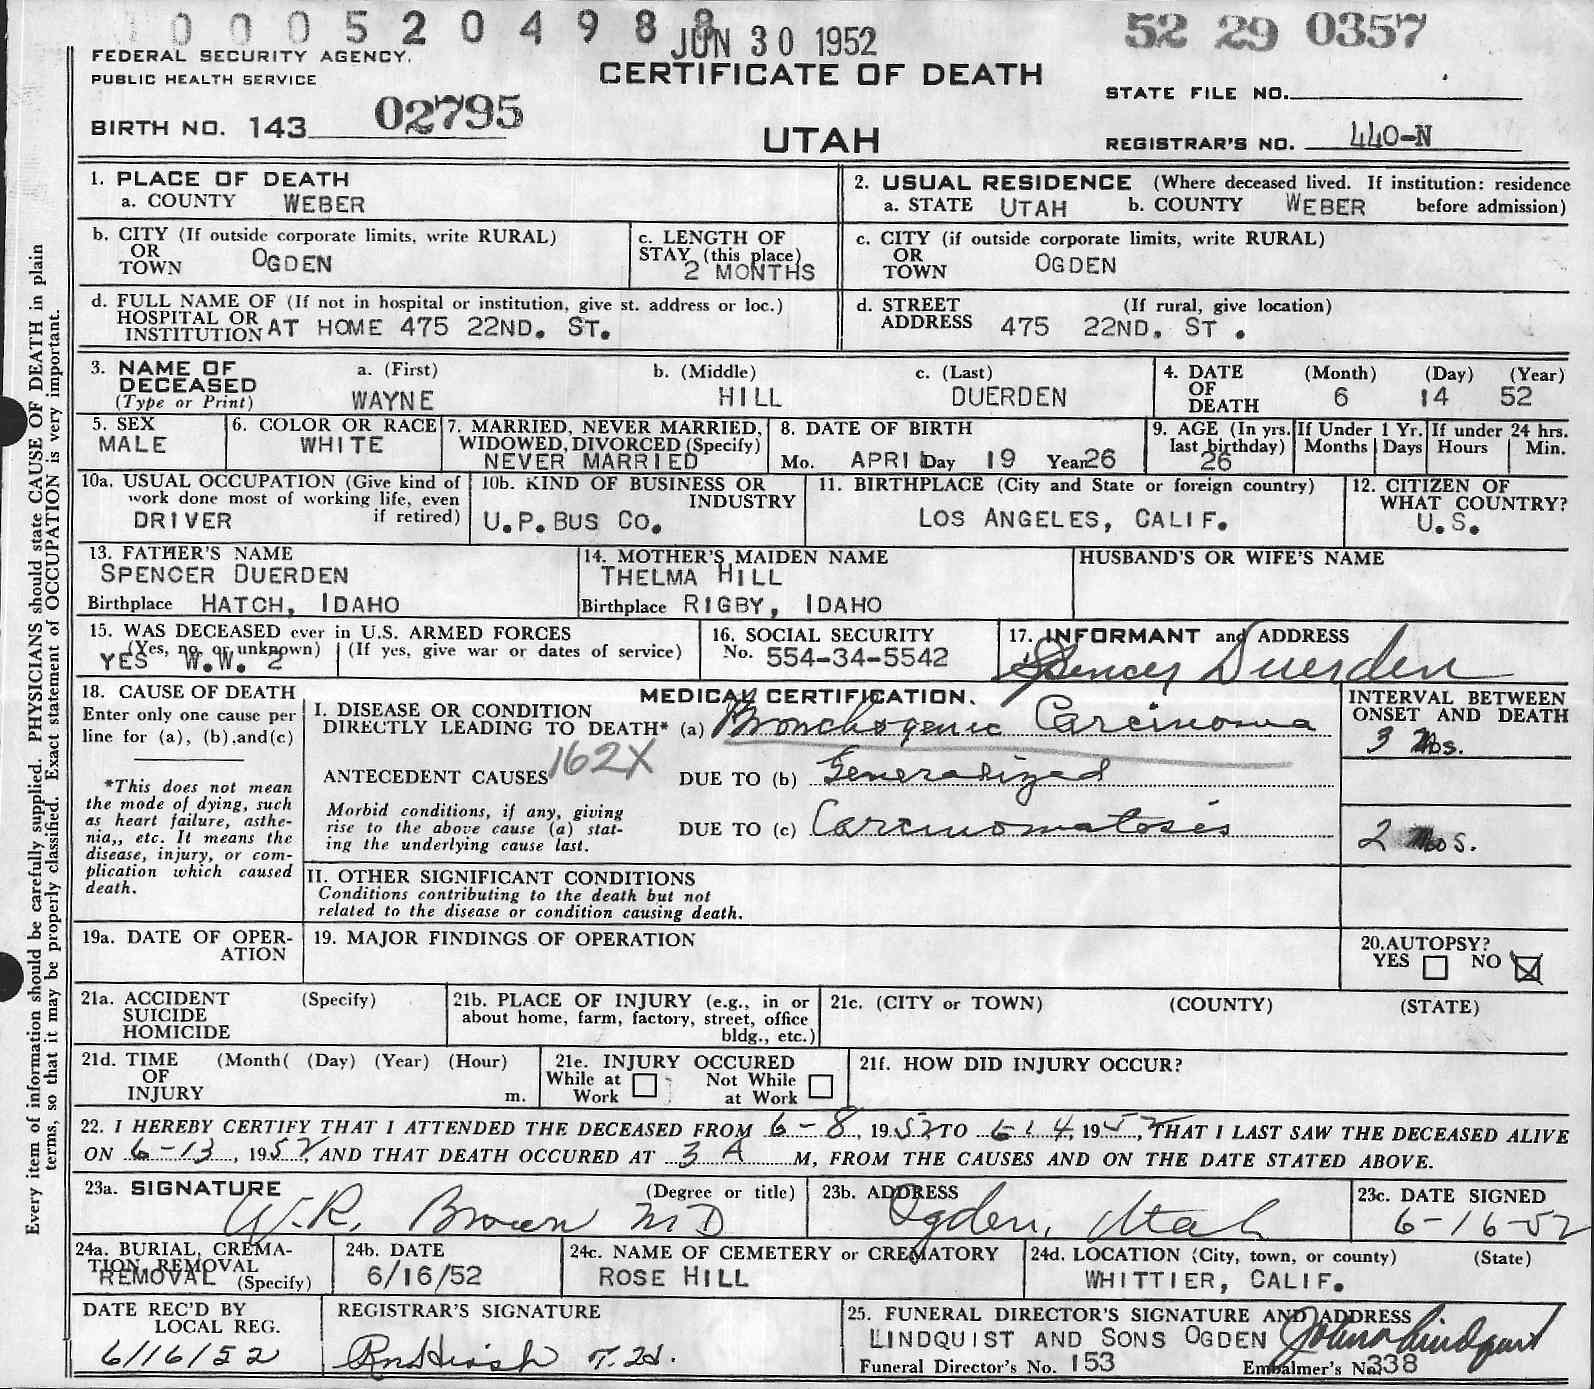 0 0 0 5 2 0 4 9 8 8
JUN 30 1952
52 29 0357
FEDERAL SECURITY AGENCY.
PUBLIC HEALTH SERVICE
CERTIFICATE OF DEATH
STATE FILE NO.
BIRTH NO. 143 02795
UTAH
REGISTRAR'S NO. 440-N
1. PLACE OF DEATH
a. COUNTY WEBER
2. USUAL RESIDENCE (Where deceased lived. If institution: residence
a. STATE UTAH b. COUNTY WEBER before admission)
b. CITY (If outside corporate limits, write RURAL)
OR
TOWN OGDEN
c. LENGTH OF
STAY (this place)
2 MONTHS
c. CITY (if outside corporate limits, write RURAL)
OR
TOWN OGDEN
d. FULL NAME OF (If not in hospital or institution, give st. address or loc.)
HOSPITAL OR
INSTITUTION AT HOME 475 22ND. ST.
d. STREET (If rural, give location)
ADDRESS 475 22ND. ST.
3. NAME OF
DECEASED
(Type or Print)
a. (First)
WAYNE
b. (Middle)
HILL
c. (Last)
DUERDEN
4. DATE
OF
DEATH
(Month) (Day) (Year)
6 14 52
5. SEX
MALE
6. COLOR OR RACE
WHITE
7. MARRIED, NEVER MARRIED,
WIDOWED, DIVORCED (Specify)
NEVER MARRIED
8. DATE OF BIRTH
Mo. APRIL Day 19 Year 26
9. AGE (In yrs.
last birthday)
26
If Under 1 Yr.
Months Days
If under 24 hrs.
Hours Min.
10a. USUAL OCCUPATION (Give kind of
work done most of working life, even
DRIVER if retired)
10b. KIND OF BUSINESS OR
INDUSTRY
U.P.BUS CO.
11. BIRTHPLACE (City and State or foreign country)
LOS ANGELES, CALIF.
12. CITIZEN OF
WHAT COUNTRY?
U.S.
13. FATHER'S NAME
SPENCER DUERDEN
Birthplace HATCH, IDAHO
14. MOTHER'S MAIDEN NAME
THELMA HILL
Birthplace RIGBY, IDAHO
HUSBAND'S OR WIFE'S NAME
15. WAS DECEASED ever in U.S. ARMED FORCES
(Yes, no, or unknown) (If yes, give war or dates of service)
YES W.W. 2
16. SOCIAL SECURITY
No. 554-34-5542
17. INFORMANT and ADDRESS
Spencer Duerden
18. CAUSE OF DEATH
Enter only one cause per
line for (a), (b), and(c)
*This does not mean
the mode of dying, such
as heart failure, asthe-
nia,, etc. It means the
disease, injury, or com-
plication which caused
death.
MEDICAL CERTIFICATION.
I. DISEASE OR CONDITION
DIRECTLY LEADING TO DEATH* (a) Bronchogenic Carcinoma
162X
ANTECEDENT CAUSES DUE TO (b) Generalized
Morbid conditions, if any, giving
rise to the above cause (a) stat-
ing the underlying cause last.
DUE TO (c) Carcinomatosis
INTERVAL BETWEEN
ONSET AND DEATH
3 Mos.
2 Mos.
II. OTHER SIGNIFICANT CONDITIONS
Conditions contributing to the death but not
related to the disease or condition causing death.
19a. DATE OF OPER-
ATION
19. MAJOR FINDINGS OF OPERATION
20. AUTOPSY?
YES NO
21a. ACCIDENT (Specify)
SUICIDE
HOMICIDE
21b. PLACE OF INJURY (e.g., in or
about home, farm, factory, street, office
bldg., etc.)
21c. (CITY or TOWN) (COUNTY) (STATE)
21d. TIME (Month( (Day) (Year) (Hour)
OF
INJURY m.
21e. INJURY OCCURED
While at Work
Not While at Work
21f. HOW DID INJURY OCCUR?
22. I HEREBY CERTIFY THAT I ATTENDED THE DECEASED FROM 6-8, 1952, TO 6-14, 1952, THAT I LAST SAW THE DECEASED ALIVE
ON 6-13, 1952, AND THAT DEATH OCCURED AT 3 A M, FROM THE CAUSES AND ON THE DATE STATED ABOVE.
23a. SIGNATURE (Degree or title)
W.R. Brown MD
23b. ADDRESS
Ogden, Utah
23c. DATE SIGNED
6-16-52
24a. BURIAL, CREMA-
TION, REMOVAL
REMOVAL (Specify)
24b. DATE
6/16/52
24c. NAME OF CEMETERY or CREMATORY
ROSE HILL
24d. LOCATION (City, town, or county) (State)
WHITTIER, CALIF.
DATE REC'D BY
LOCAL REG.
6/16/52
REGISTRAR'S SIGNATURE
25. FUNERAL DIRECTOR'S SIGNATURE AND ADDRESS
LINDQUIST AND SONS OGDEN
Funeral Director's No. 153 Embalmer's No. 338
Every item of information should be carefully supplied. PHYSICIANS should state CAUSE OF DEATH in plain
terms, so that it may be properly classified. Exact statement of OCCUPATION is very important.